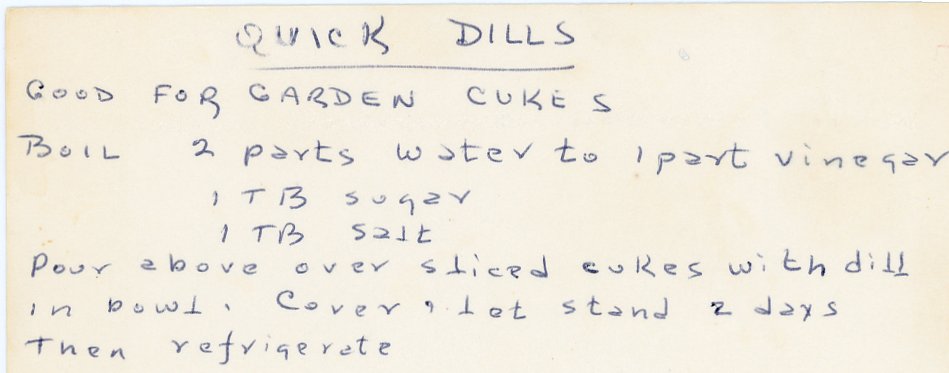 QUICK DILLS
GOOD FOR GARDEN CUKES
BOIL 2 parts water to 1 part vinegar
1 TB sugar
1 TB salt
Pour above over sliced cukes with dill
in bowl. Cover, let stand 2 days
Then refrigerate